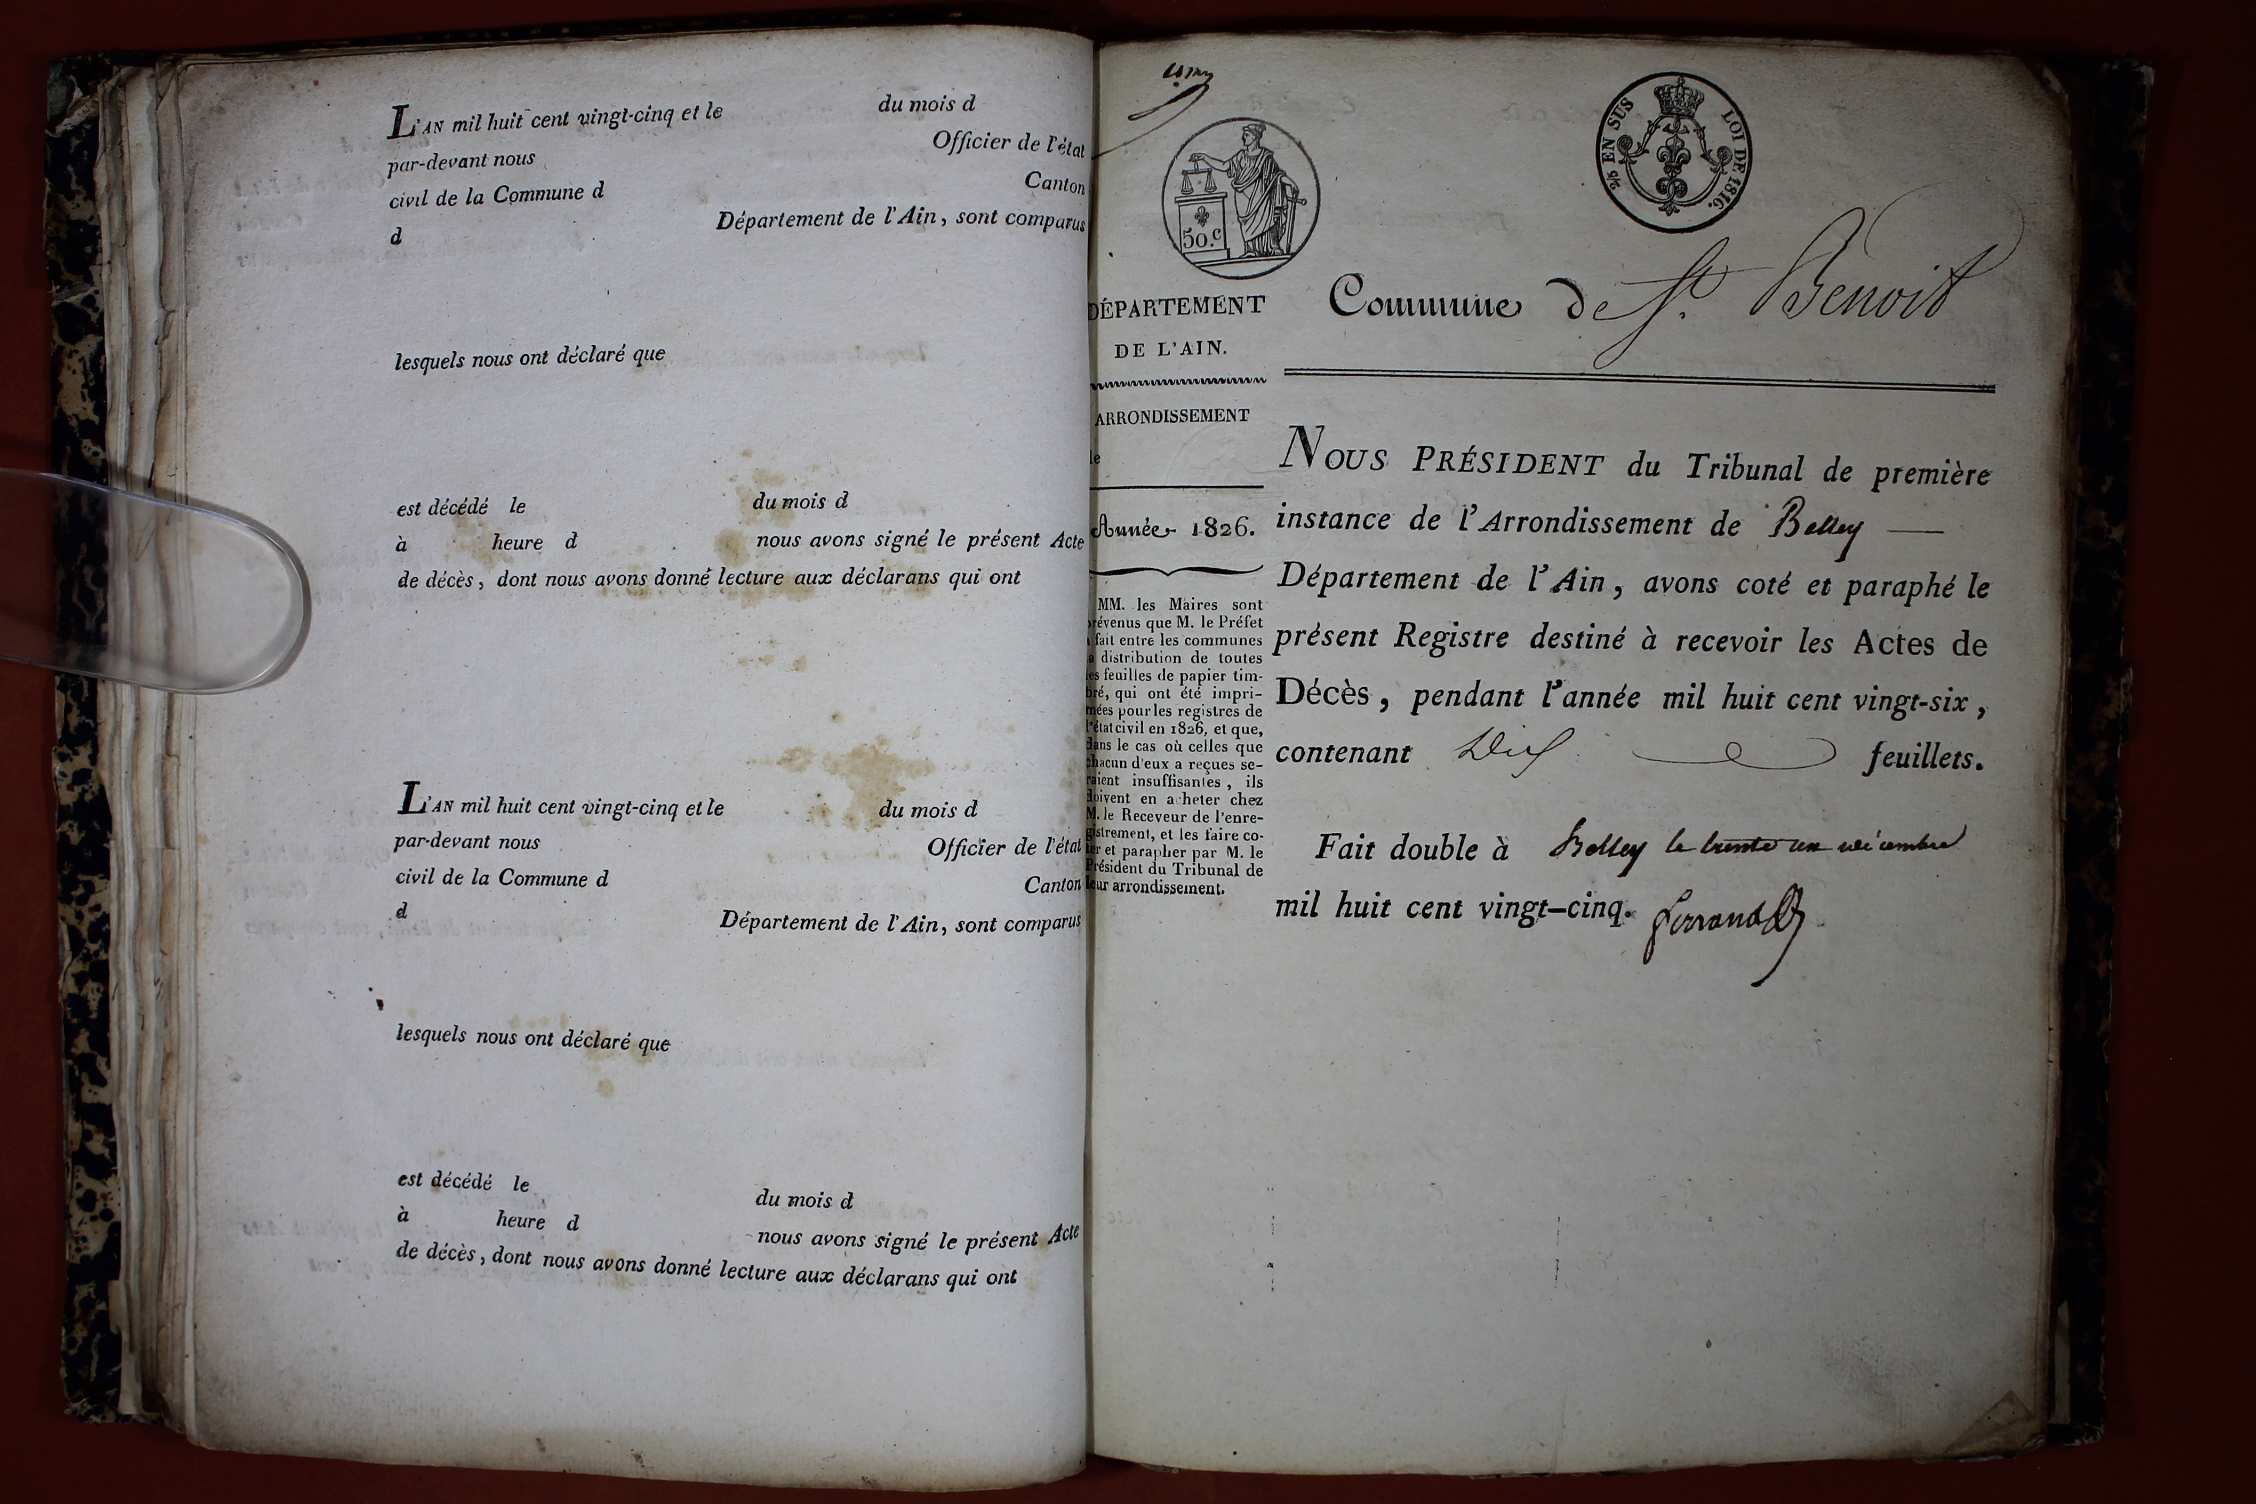 L'AN mil huit cent vingt-cinq et le du mois d
par-devant nous Officier de l'état
civil de la Commune d Canton
d Département de l'Ain, sont comparus
lesquels nous ont déclaré que
est décédé le du mois d
à heure d nous avons signé le présent Acte
de décès, dont nous avons donné lecture aux déclarans qui ont
L'AN mil huit cent vingt-cinq et le du mois d
par-devant nous Officier de l'état
civil de la Commune d Canton
d Département de l'Ain, sont comparus
lesquels nous ont déclaré que
est décédé le du mois d
à heure d nous avons signé le présent Acte
de décès, dont nous avons donné lecture aux déclarans qui ont
50.c
2/5 EN SUS LOI DE 1816.
DÉPARTEMENT
DE L'AIN.
ARRONDISSEMENT
Année 1826.
MM. les Maires sont
prévenus que M. le Préfet
a fait entre les communes
la distribution de toutes
les feuilles de papier tim-
bré, qui ont été impri-
mées pour les registres de
l'état civil en 1826, et que,
dans le cas où celles que
chacun d'eux a reçues se-
raient insuffisantes, ils
doivent en acheter chez
M. le Receveur de l'enre-
gistrement, et les faire co-
ter et parapher par M. le
Président du Tribunal de
leur arrondissement.
Commune de St. Benoit
NOUS PRÉSIDENT du Tribunal de première
instance de l'Arrondissement de Belley
Département de l'Ain, avons coté et paraphé le
présent Registre destiné à recevoir les Actes de
Décès, pendant l'année mil huit cent vingt-six,
contenant Dix feuillets.
Fait double à Belley le trente un décembre
mil huit cent vingt-cinq. Ferrand